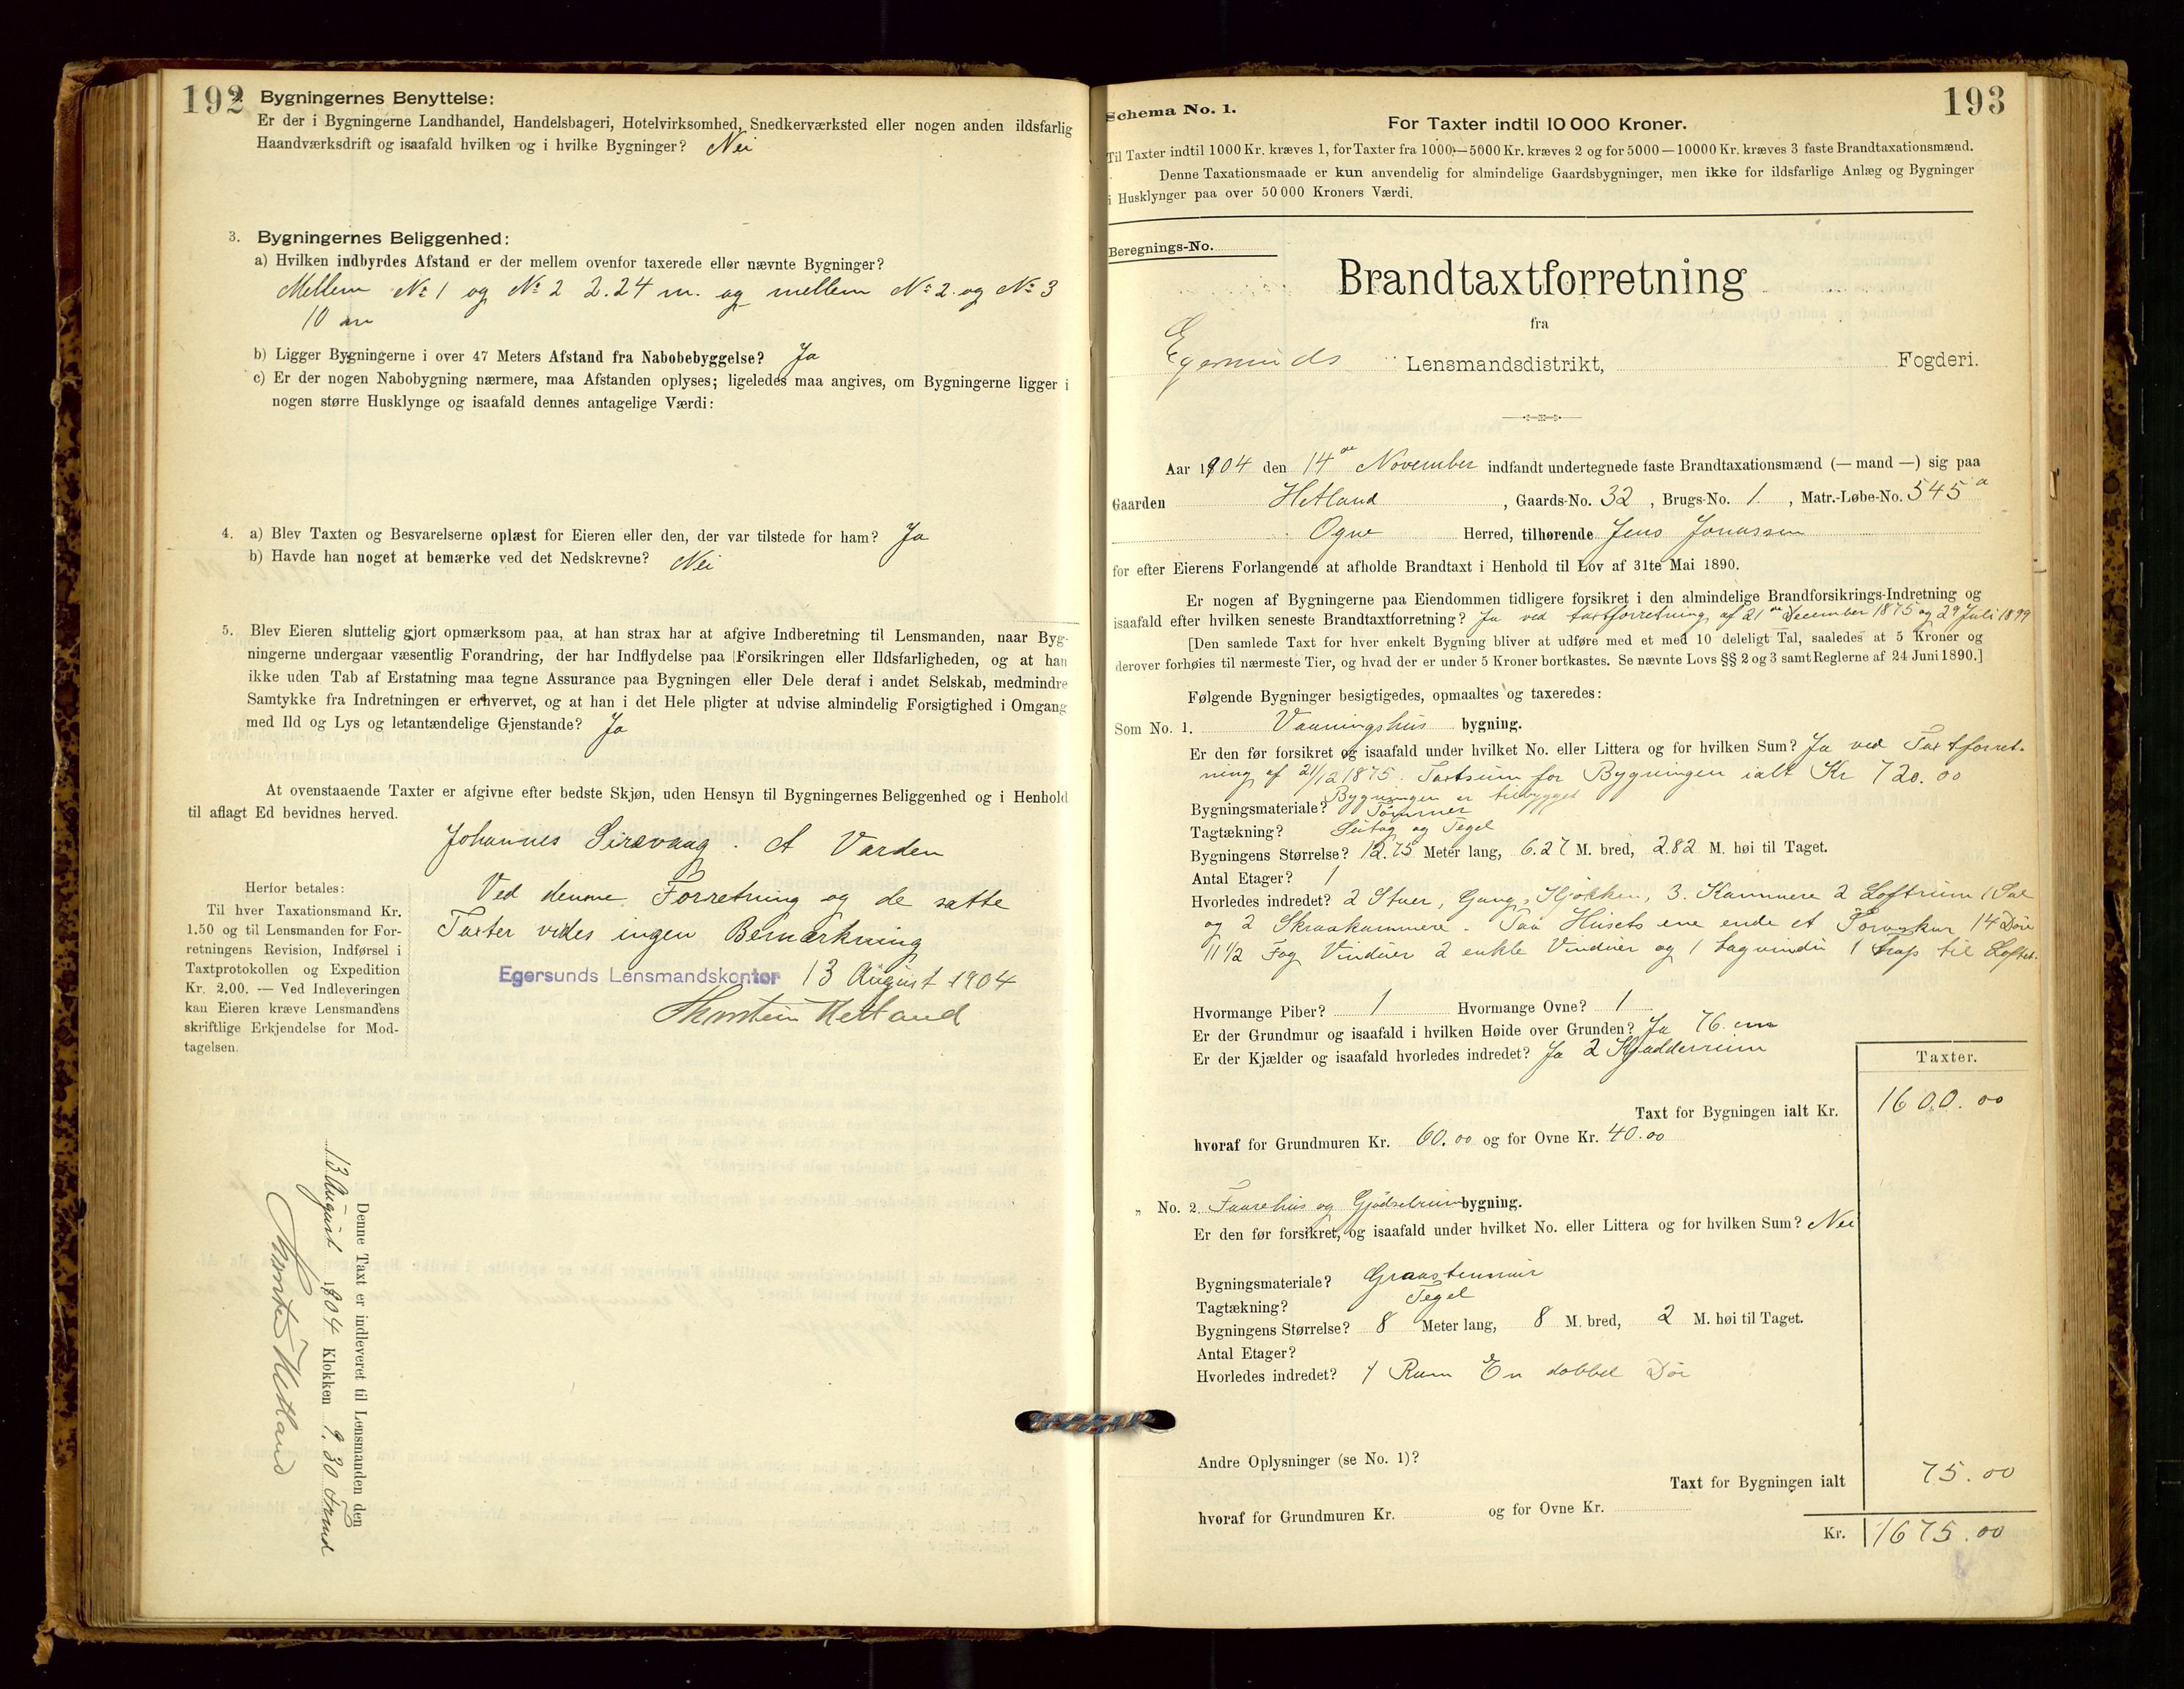 192
Bygningernes Benyttelse:
Er der i Bygningerne Landhandel, Handelsbageri, Hotelvirksomhed, Snedkerværksted eller nogen anden ildsfarlig
Haandværksdrift og isaafald hvilken og i hvilke Bygninger? Nei
3. Bygningernes Beliggenhed:
a) Hvilken indbyrdes Afstand er der mellem ovenfor taxerede eller nævnte Bygninger?
Mellem No 1 og No 2 2.24 m. og mellem No 2 og No 3
10 m
b) Ligger Bygningerne i over 47 Meters Afstand fra Nabobebyggelse? Ja
c) Er der nogen Nabobygning nærmere, maa Afstanden oplyses; ligeledes maa angives, om Bygningerne ligger i
nogen større Husklynge og isaafald dennes antagelige Værdi:
4. a) Blev Taxten og Besvarelserne oplæst for Eieren eller den, der var tilstede for ham? Ja
b) Havde han noget at bemærke ved det Nedskrevne? Nei
5. Blev Eieren sluttelig gjort opmærksom paa, at han strax har at afgive Indberetning til Lensmanden, naar Byg-
ningerne undergaar væsentlig Forandring, der har Indflydelse paa Forsikringen eller Ildsfarligheden, og at han
ikke uden Tab af Erstatning maa tegne Assurance paa Bygningen eller Dele deraf i andet Selskab, medmindre
Samtykke fra Indretningen er erhvervet, og at han i det Hele pligter at udvise almindelig Forsigtighed i Omgang
med Ild og Lys og letantændelige Gjenstande? Ja
At ovenstaaende Taxter er afgivne efter bedste Skjøn, uden Hensyn til Bygningernes Beliggenhed og i Henhold
til aflagt Ed bevidnes herved.
Johannes Sirevaag. A Varden
Ved denne Forretning og de satte
Taxter vides ingen Bemærkning
Egersunds Lensmandskontor 13 August 1904
Thorstein Hetland
Herfor betales:
Til hver Taxationsmand Kr.
1.50 og til Lensmanden for For-
retningens Revision, Indførsel i
Taxtprotokollen og Expedition
Kr. 2.00. — Ved Indleveringen
kan Eieren kræve Lensmandens
skriftlige Erkjendelse for Mod-
tagelsen.
Denne Taxt er indleveret til Lensmanden den
13 August 1904 Klokken 9.30 Formd
Thorstein Hetland
193
Schema No. 1.
For Taxter indtil 10 000 Kroner.
Til Taxter indtil 1000 Kr. kræves 1, for Taxter fra 1000—5000 Kr. kræves 2 og for 5000—10000 Kr. kræves 3 faste Brandtaxationsmænd.
Denne Taxationsmaade er kun anvendelig for almindelige Gaardsbygninger, men ikke for ildsfarlige Anlæg og Bygninger
i Husklynger paa over 50 000 Kroners Værdi.
Beregnings-No.
Brandtaxtforretning
fra
Egersunds Lensmandsdistrikt, Fogderi.
Aar 1904 den 14de November indfandt undertegnede faste Brandtaxationsmænd (— mand —) sig paa
Gaarden Hetland, Gaards-No. 32, Brugs-No. 1, Matr.-Løbe-No. 545a
Ogne Herred, tilhørende Jens Jonassen
for efter Eierens Forlangende at afholde Brandtaxt i Henhold til Lov af 31te Mai 1890.
Er nogen af Bygningerne paa Eiendommen tidligere forsikret i den almindelige Brandforsikrings-Indretning og
isaafald efter hvilken seneste Brandtaxtforretning? Ja ved taxtforretning af 21de December 1875 og 29 Juli 1899
[Den samlede Taxt for hver enkelt Bygning bliver at udføre med et med 10 deleligt Tal, saaledes at 5 Kroner og
derover forhøies til nærmeste Tier, og hvad der er under 5 Kroner bortkastes. Se nævnte Lovs §§ 2 og 3 samt Reglerne af 24 Juni 1890.]
Følgende Bygninger besigtigedes, opmaaltes og taxeredes:
Som No. 1. Vaaningshus bygning.
Er den før forsikret og isaafald under hvilket No. eller Littera og for hvilken Sum? Ja ved Taxtforret-
ning af 21/12 1875. Taxtsum for Bygningen ialt Kr 720.00
Bygningen er tilbygget
Bygningsmateriale? Tømmer
Tagtækning? Seitag og Tegel
Bygningens Størrelse? 12.75 Meter lang, 6.27 M. bred, 2.82 M. høi til Taget.
Antal Etager? 1
Hvorledes indredet? 2 Stuer, Gang, Kjøkken, 3. Kammere 2 Loftrum 1 Sal
og 2 Skraakammere. Paa Husets ene ende et Torvskur 14 Døre
11 1/2 Fag Vinduer 2 enkle Vinduer og 1 tagvindu 1 trap til Loftet.
Hvormange Piber? 1 Hvormange Ovne? 1
Er der Grundmur og isaafald i hvilken Høide over Grunden? Ja 76. cm
Er der Kjælder og isaafald hvorledes indredet? Ja 2 Kjælderrum
Taxter.
Taxt for Bygningen ialt Kr. 1600.00
hvoraf for Grundmuren Kr. 60.00 og for Ovne Kr. 40.00
„ No. 2 Faarehus og Gjødselrum bygning.
Er den før forsikret, og isaafald under hvilket No. eller Littera og for hvilken Sum? Nei
Bygningsmateriale? Graastenmur
Tagtækning? Tegel
Bygningens Størrelse? 8 Meter lang, 8 M. bred, 2 M. høi til Taget.
Antal Etager?
Hvorledes indredet? 1 Rum En dobbel Dør
Andre Oplysninger (se No. 1)?
Taxt for Bygningen ialt 75.00
hvoraf for Grundmuren Kr. og for Ovne Kr.
Kr. 1675.00